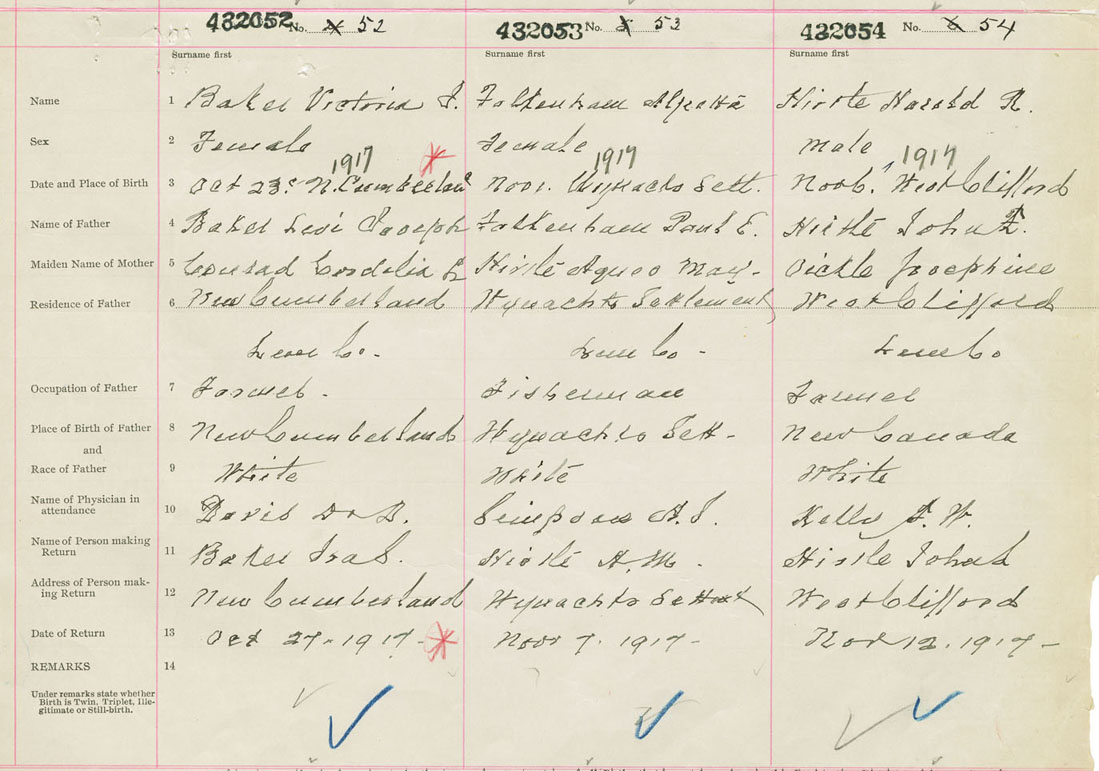 432052 No. 52 432053 No. 53 432054 No. 54
Surname first Surname first Surname first
Name 1 Baker Victoria J. Falkenham Hirtle Harold R.
Sex 2 Female Female Male
1917 1917 1917
Date and Place of Birth 3 Oct 23 N. Cumberland Nov 1. Sett. Nov 6. West Clifford
Name of Father 4 Baker Levi Joseph Falkenham Paul E. Hirtle John
Maiden Name of Mother 5 Conrad Cordelia Hirtle Agnes May - Josephine
Residence of Father 6 New Cumberland Settlement West Clifford
Lun Co - Lun Co - Lun Co
Occupation of Father 7 Farmer - Fisherman Farmer
Place of Birth of Father 8 New Cumberland Sett - New Canada
and
Race of Father 9 White White White
Name of Physician in
attendance 10 Davis Dr D. Simpson A. J. Kelly F. W.
Name of Person making
Return 11 Baker Ira S. Hirtle A. M. Hirtle John
Address of Person mak-
ing Return 12 New Cumberland West Clifford
Date of Return 13 Oct 27 - 1917 - Nov 7. 1917 - Nov 12. 1917 -
REMARKS 14
Under remarks state whether
Birth is Twin, Triplet, Ille-
gitimate or Still-birth.